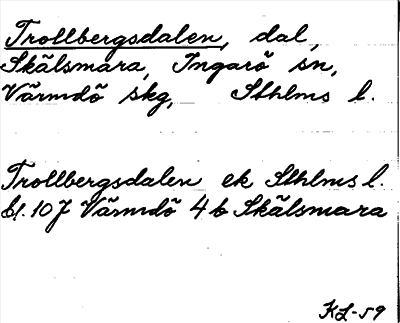 Trollbergsdalen, dal,
Skälsmara, Ingarö sn,
Värmdö skg, Sthlms l.
Trollbergsdalen ek Sthlms l.
bl. 107 Värmdö 4b Skälsmara
KL-59